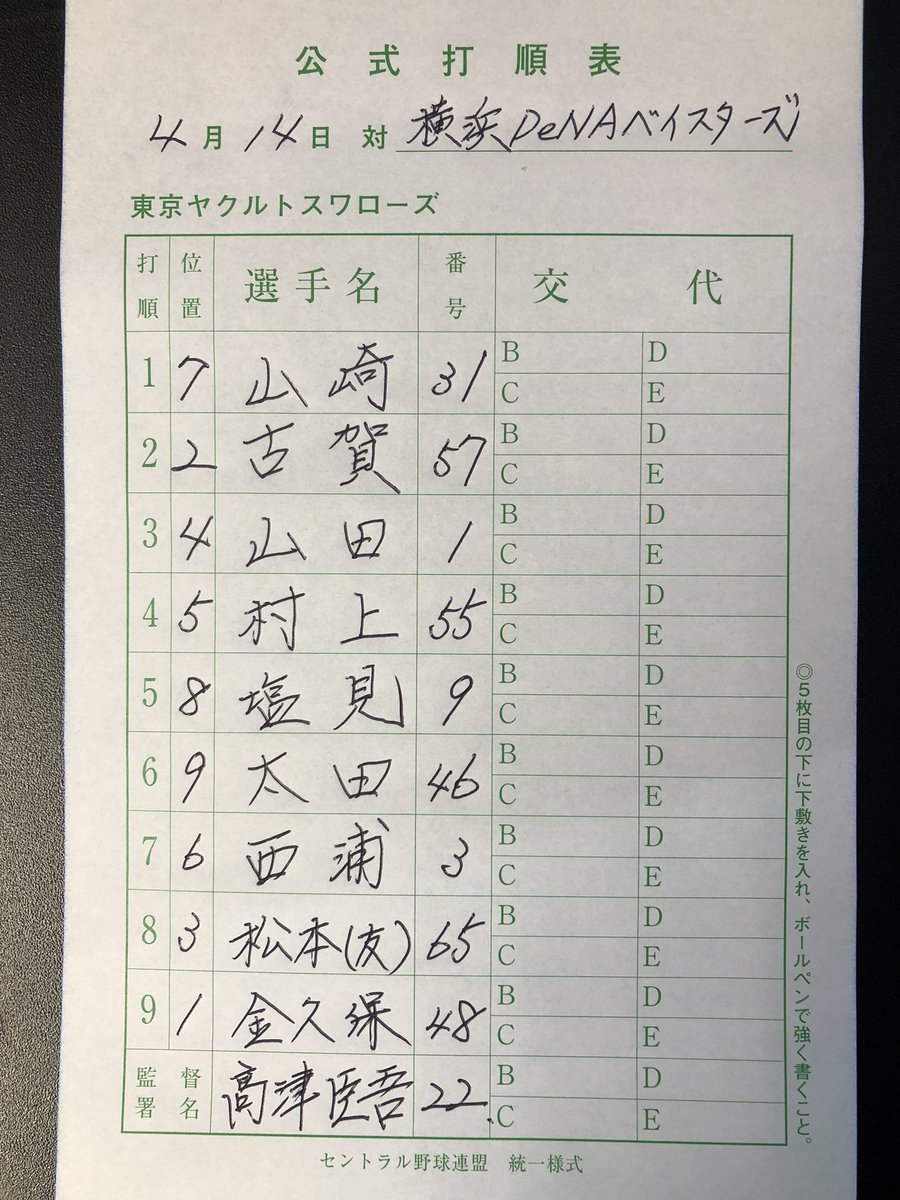 公式打順表
4月14日 対 横浜DeNAベイスターズ
東京ヤクルトスワローズ
打順 位置 選手名 番号 交代
1 7 山崎 31 B D C E
2 2 古賀 57 B D C E
3 4 山田 1 B D C E
4 5 村上 55 B D C E
5 8 塩見 9 B D C E
6 9 太田 46 B D C E
7 6 西浦 3 B D C E
8 3 松本(友) 65 B D C E
9 1 金久保 48 B D C E
監督署名 高津臣吾 22 B D C E
◎5枚目の下に下敷きを入れ、ボールペンで強く書くこと。
セントラル野球連盟 統一様式